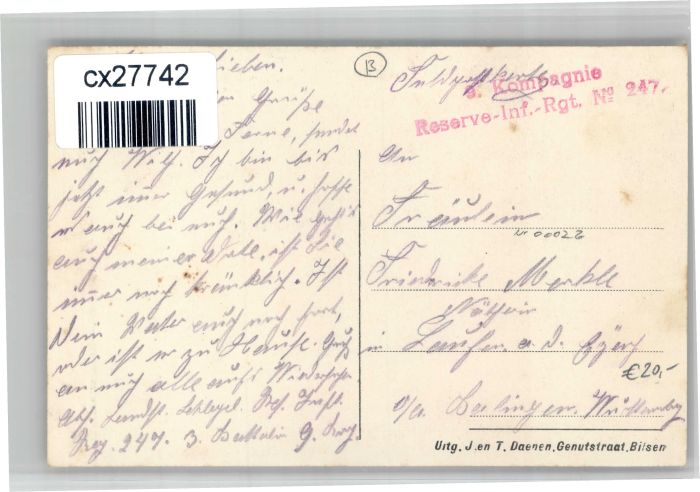 cx27742
B
lieben.
Grüße
Ferne, sendet
euch Wilh. Ich bin bis
jetzt imer Gesund, u. hoffe
es auch bei euch. Wie geht's
auch meiner ist Sie
imer noch kränklich. Ist
Dein Vater auch noch fort,
oder ist er zu Hause. Gruß
an euch alle aufs Wiedersehn
Abs. Landst. Schlegel. Res. Inft.
Reg. 247. 3. Battalion 9. Komp.
Feldpostkarte
9. Kompagnie
Reserve-Inf.-Rgt. No 247.
An
Fräulein
Nr 00022
Friedericke Merkle
Näherin
in Laufen a. d. Eyach
€20,-
o/a. Balingen. Württemberg
Uitg. J. en T. Daenen, Genutstraat, Bilsen